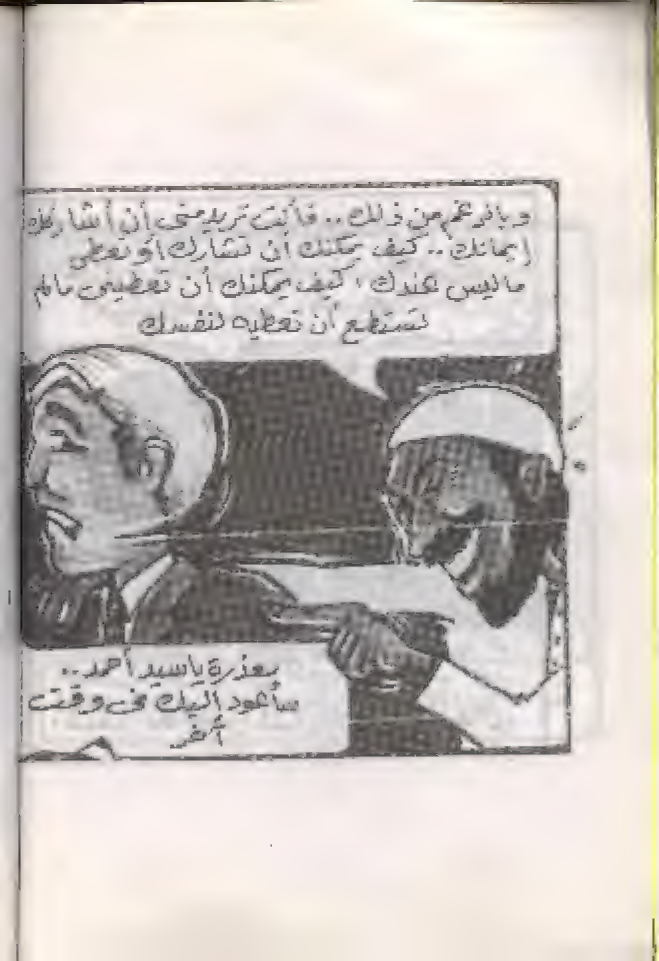 وبالرغم من ذلك.. فأنت تريد منى أن أشاركك
إيمانك.. كيف يمكنك أن تشارك أو تعطى
ماليس عندك، كيف يمكنك أن تعطينى مالم
تستطع أن تعطيه لنفسك
معذرة ياسيد أحمد..
سأعود اليك فى وقت
آخر